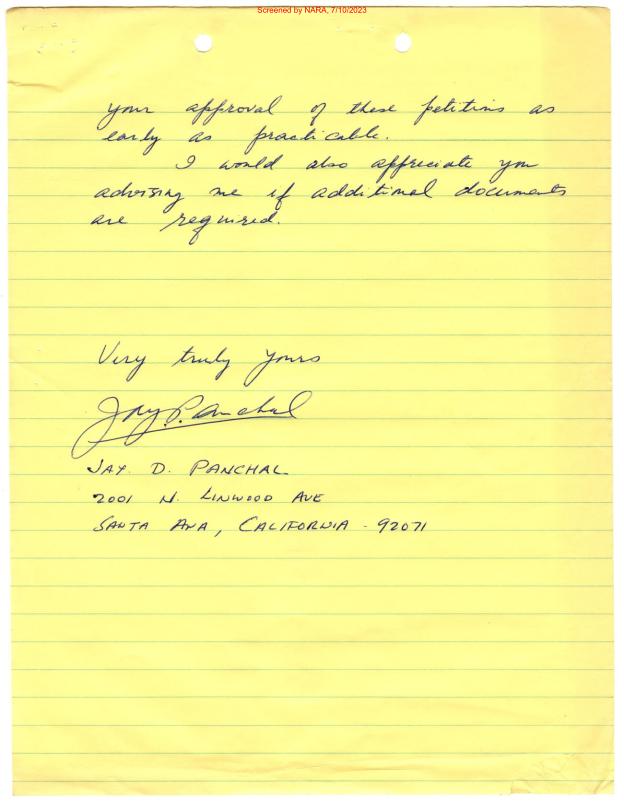 Screened by NARA, 7/10/2023
your approval of these petitins as
early as practicable.
I would also appreciate you
advising me if additional documents
are required.
Very truly yours
Jay P. Panchal
JAY. D. PANCHAL
2001 N. LINWOOD AVE
SANTA ANA, CALIFORNIA - 92071